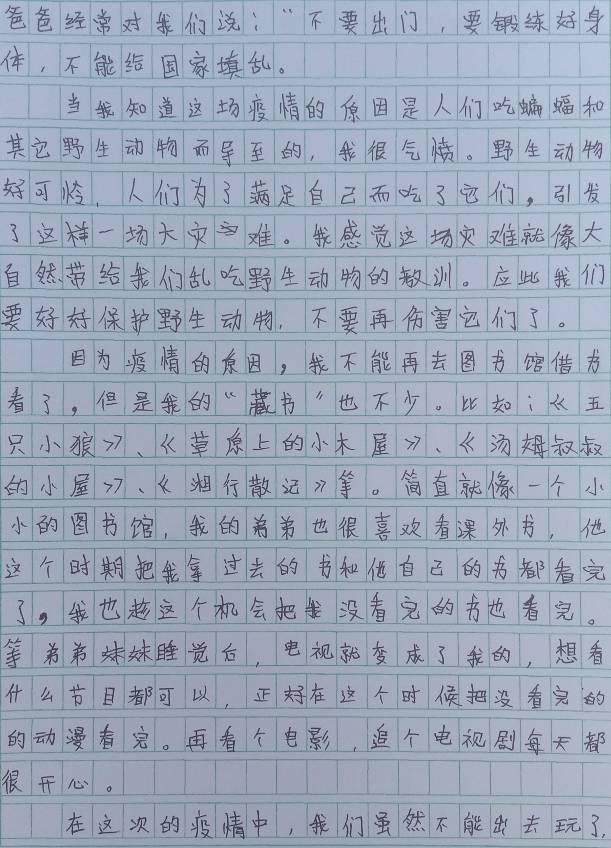 爸爸经常对我们说：“不要出门，要锻练好身
体，不能给国家填乱。
当我知道这场疫情的原因是人们吃蝙蝠和
其它野生动物而导至的，我很气愤。野生动物
好可怜，人们为了满足自己而吃了它们，引发
了这样一场大灾难。我感觉这场灾难就像大
自然带给我们乱吃野生动物的教训。应此我们
要好好保护野生动物，不要再伤害它们了。
因为疫情的原因，我不能再去图书馆借书
看了，但是我的“藏书”也不少。比如：《五
只小狼》、《草原上的小木屋》、《汤姆叔叔
的小屋》、《湘行散记》等。简直就像一个小
小的图书馆，我的弟弟也很喜欢看课外书，他
这个时期把我拿过去的书和他自己的书都看完
了，我也趁这个机会把我没看完的书也看完。
等弟弟妹妹睡觉后，电视就变成了我的，想看
什么节目都可以，正好在这个时候把没看完的
的动漫看完。再看个电影，追个电视剧每天都
很开心。
在这次的疫情中，我们虽然不能出去玩了，